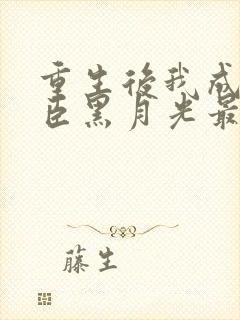 重生后我成
臣黑月光最
藤生